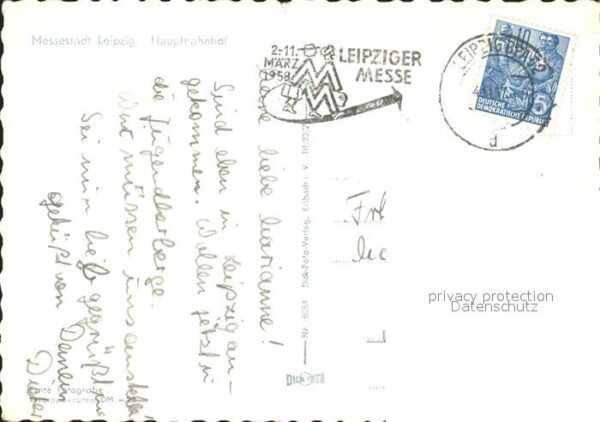 Messestadt Leipzig. Hauptbahnhof
2.-11.
MÄRZ
1958
LEIPZIGER
MESSE
LEIPZIG
10
DEUTSCHE
DEMOKRATISCHE REPUBLIK
d
Meine liebe Marianne!
Sind eben in Leipzig an-
gekommen. Wollen jetzt in
die Jugendherberge.
Wir müssen uns anstellen
Sei nun lieb gegrüßt und
geküßt von Deinem
Dieter
Dick-Foto-Verlag, Erlbach i. V.
Nr. 5034
Dick
Echte Fotografie
privacy protection
Datenschutz